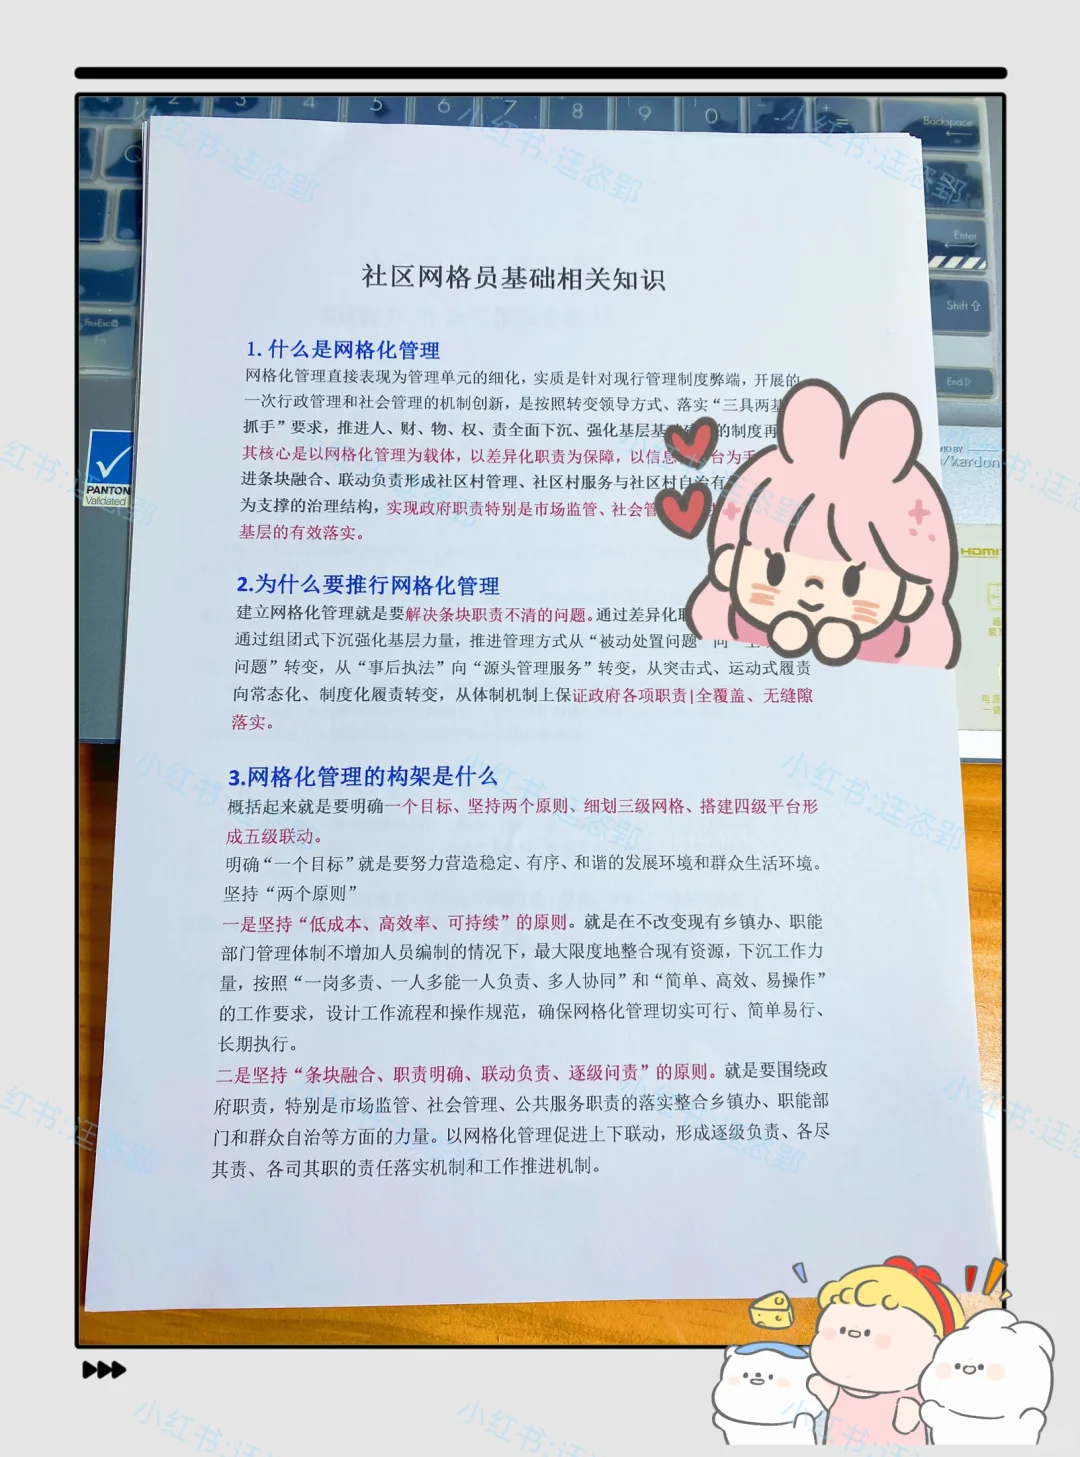 社区网格员基础相关知识
1. 什么是网格化管理
网格化管理直接表现为管理单元的细化，实质是针对现行管理制度弊端，开展的
一次行政管理和社会管理的机制创新，是按照转变领导方式、落实“三具两基
抓手”要求，推进人、财、物、权、责全面下沉、强化基层基 的制度再
其核心是以网格化管理为载体，以差异化职责为保障，以信息 台为手
进条块融合、联动负责形成社区村管理、社区村服务与社区村自治有
为支撑的治理结构，实现政府职责特别是市场监管、社会管
基层的有效落实。
2.为什么要推行网格化管理
建立网格化管理就是要解决条块职责不清的问题。通过差异化职
通过组团式下沉强化基层力量，推进管理方式从“被动处置问题”向“主
问题”转变，从“事后执法”向“源头管理服务”转变，从突击式、运动式履责
向常态化、制度化履责转变，从体制机制上保证政府各项职责|全覆盖、无缝隙
落实。
3.网格化管理的构架是什么
概括起来就是要明确一个目标、坚持两个原则、细划三级网格、搭建四级平台形
成五级联动。
明确“一个目标”就是要努力营造稳定、有序、和谐的发展环境和群众生活环境。
坚持“两个原则”
一是坚持“低成本、高效率、可持续”的原则。就是在不改变现有乡镇办、职能
部门管理体制不增加人员编制的情况下，最大限度地整合现有资源，下沉工作力
量，按照“一岗多责、一人多能一人负责、多人协同”和“简单、高效、易操作”
的工作要求，设计工作流程和操作规范，确保网格化管理切实可行、简单易行、
长期执行。
二是坚持“条块融合、职责明确、联动负责、逐级问责”的原则。就是要围绕政
府职责，特别是市场监管、社会管理、公共服务职责的落实整合乡镇办、职能部
门和群众自治等方面的力量。以网格化管理促进上下联动，形成逐级负责、各尽
其责、各司其职的责任落实机制和工作推进机制。
2 3 4 5 6 7 8 9 0 - + =
Backspace
Enter
Shift
End
Fn+Esc
Fn
PANTON
Validated
/kardon
HDMI
小红书:迋恣郢